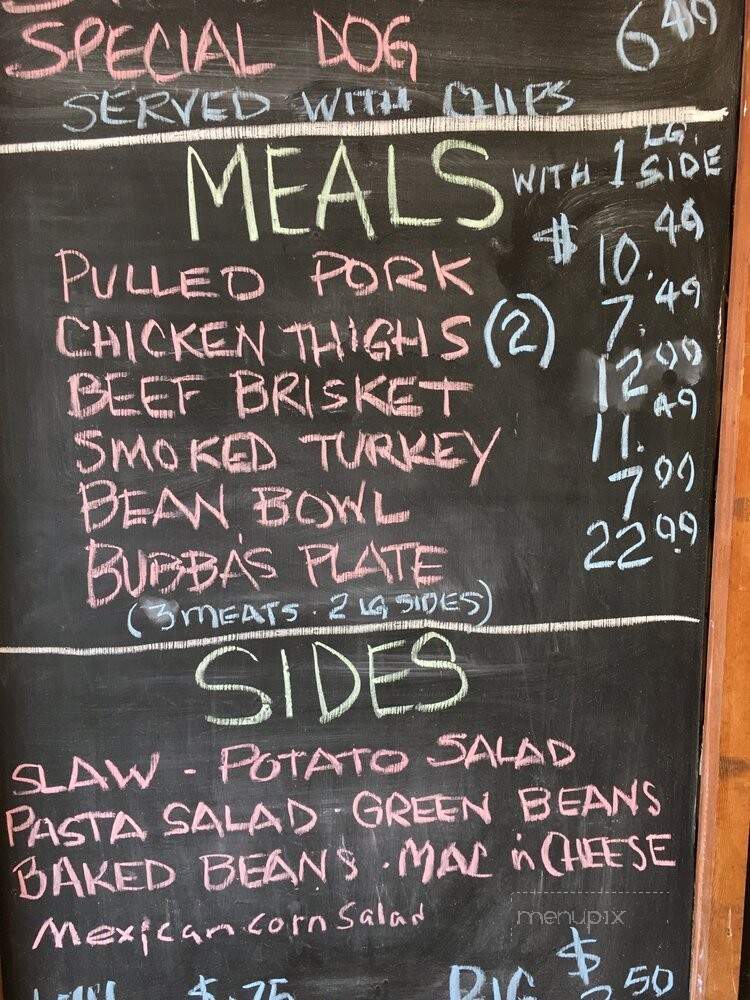 SPECIAL DOG 6 49
SERVED WITH CHIPS
MEALS WITH 1 LG. SIDE
PULLED PORK $10.49
CHICKEN THIGHS (2) 7.49
BEEF BRISKET 12 99
SMOKED TURKEY 11.49
BEAN BOWL 7 99
BUBBA'S PLATE 22 99
(3 MEATS · 2 LG SIDES)
SIDES
SLAW - POTATO SALAD
PASTA SALAD · GREEN BEANS
BAKED BEANS · MAC in CHEESE
Mexican corn Salad
menupix
$.75 BIG $ 50